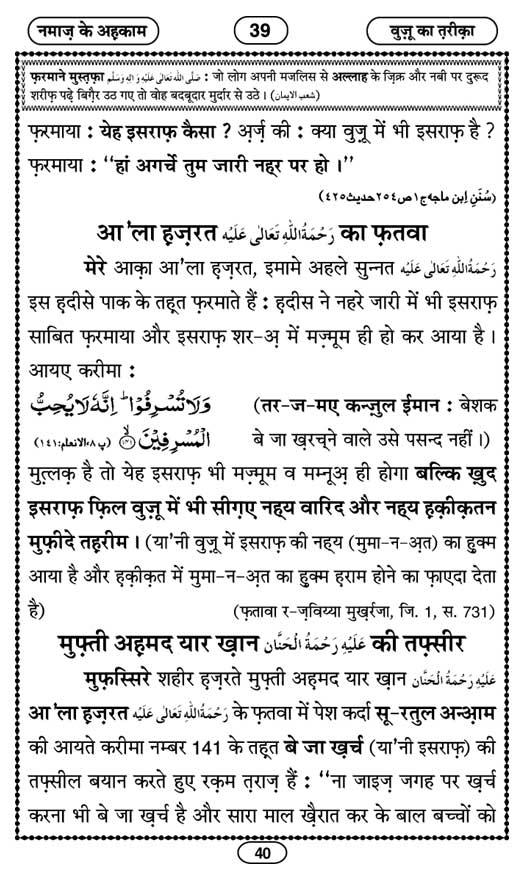 नमाज़ के अह़काम
39
वुज़ू का त़रीक़ा
फ़रमाने मुस्त़फ़ा صَلَّى اللهُ تَعَالٰى عَلَيْهِ وَاٰلِهٖ وَسَلَّم : जो लोग अपनी मजलिस से अल्लाह के ज़िक्र और नबी पर दुरूद
शरीफ़ पढ़े बिग़ैर उठ गए तो वोह बदबूदार मुर्दार से उठे । (شعب الایمان)
फ़रमाया : येह इसराफ़ कैसा ? अ़र्ज़ की : क्या वुज़ू में भी इसराफ़ है ?
फ़रमाया : ‘‘हां अगर्चे तुम जारी नह्‌र पर हो ।’’
(سُنَنِ اِبن ماجه ج۱ ص۲۵٤ حدیث ٤۲۵)
आ’ला ह़ज़रत رَحْمَةُ اللهِ تَعَالٰى عَلَيْه का फ़तवा
मेरे आक़ा आ’ला ह़ज़रत, इमामे अहले सुन्नत رَحْمَةُ اللهِ تَعَالٰى عَلَيْه
इस ह़दीसे पाक के तह़्‌त फ़रमाते हैं : ह़दीस ने नहरे जारी में भी इसराफ़
साबित फ़रमाया और इसराफ़ शर-अ़ में मज़्मूम ही हो कर आया है ।
आयए करीमा :
وَلَا تُسْرِفُوْا ؕ اِنَّهٗ لَا يُحِبُّ (तर-ज-मए कन्ज़ुल ईमान : बेशक
الْمُسْرِفِيْنَ (پ۸،الانعام:۱٤۱) बे जा ख़रचने वाले उसे पसन्द नहीं ।)
मुत़्लक़ है तो येह इसराफ़ भी मज़्मूम व मम्नूअ़ ही होगा बल्कि ख़ुद
इसराफ़ फ़िल वुज़ू में भी सीग़ए नह्‌य वारिद और नह्‌य ह़क़ीक़तन
मुफ़ीदे तह़रीम । (या’नी वुज़ू में इसराफ़ की नह्‌य (मुमा-न-अ़त) का हुक्म
आया है और ह़क़ीक़त में मुमा-न-अ़त का हुक्म ह़राम होने का फ़ाएदा देता
है) (फ़तावा र-ज़विय्या मुख़र्रजा, जि. 1, स. 731)
मुफ़्ती अह़मद यार ख़ान عَلَيْهِ رَحْمَةُ الْحَنَّان की तफ़्सीर
मुफ़स्सिरे शहीर ह़ज़रते मुफ़्ती अह़मद यार ख़ान عَلَيْهِ رَحْمَةُ الْحَنَّان
आ’ला ह़ज़रत رَحْمَةُ اللهِ تَعَالٰى عَلَيْه के फ़तवा में पेश कर्दा सू-रतुल अन्आ़म
की आयते करीमा नम्बर 141 के तह़्‌त बे जा ख़र्च (या’नी इसराफ़) की
तफ़्सील बयान करते हुए रक़म त़राज़ हैं : ‘‘ना जाइज़ जगह पर ख़र्च
करना भी बे जा ख़र्च है और सारा माल ख़ैरात कर के बाल बच्चों को
40